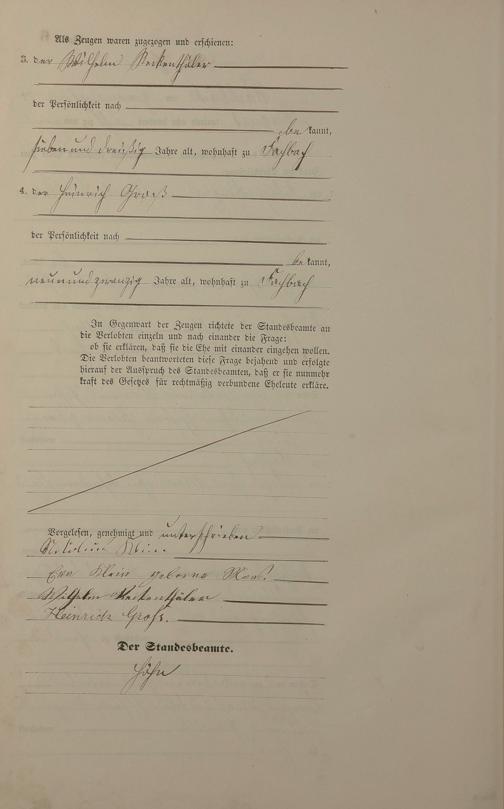 Als Zeugen waren zugezogen und erschienen:
3. der Wilhelm Reckenthäler
der Persönlichkeit nach
be kannt,
sieben und dreißig Jahre alt, wohnhaft zu Fachbach
4. der Heinrich Groß
der Persönlichkeit nach
be kannt,
neunundzwanzig Jahre alt, wohnhaft zu Fachbach
In Gegenwart der Zeugen richtete der Standesbeamte an
die Verlobten einzeln und nach einander die Frage:
ob sie erklären, daß sie die Ehe mit einander eingehen wollen.
Die Verlobten beantworteten diese Frage bejahend und erfolgte
hierauf der Ausspruch des Standesbeamten, daß er sie nunmehr
kraft des Gesetzes für rechtmäßig verbundene Eheleute erkläre.
Vorgelesen, genehmigt und unterschrieben
Eva Klein geborne
Wilhelm Reckenthäler
Heinrich Groß.
Der Standesbeamte.
Höhn